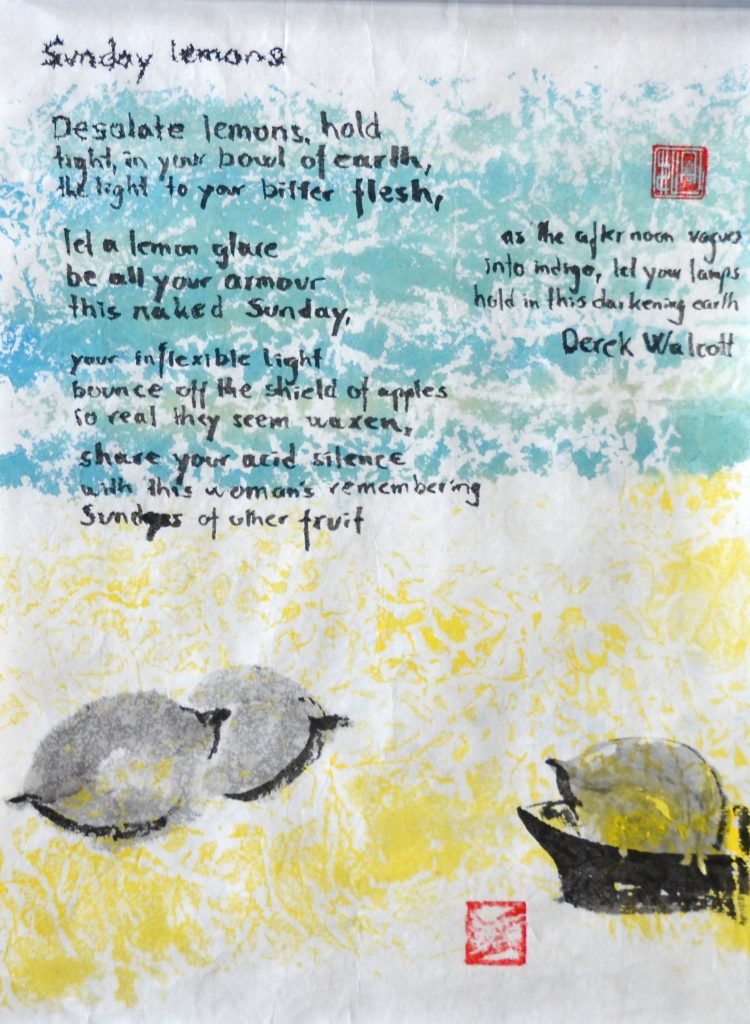 Sunday lemons
Desolate lemons, hold
tight, in your bowl of earth,
the light to your bitter flesh,
let a lemon glare
be all your armour
this naked Sunday,
your inflexible light
bounce off the shield of apples
so real they seem waxen,
share your acid silence
with this woman's remembering
Sundays of other fruit
as the afternoon vagues
into indigo, let your lamps
hold in this darkening earth
Derek Walcott